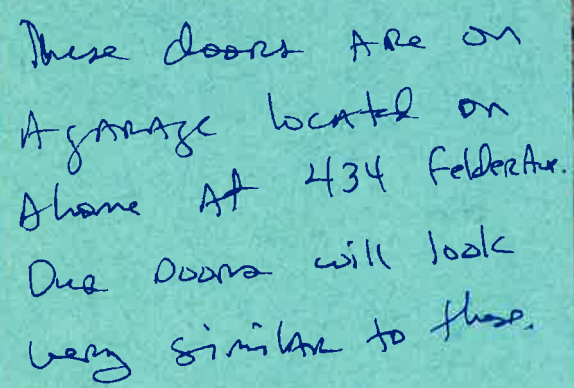 These doors are on
A garage located on
A home At 434 Felder Ave.
Our Doors will look
very similar to these.